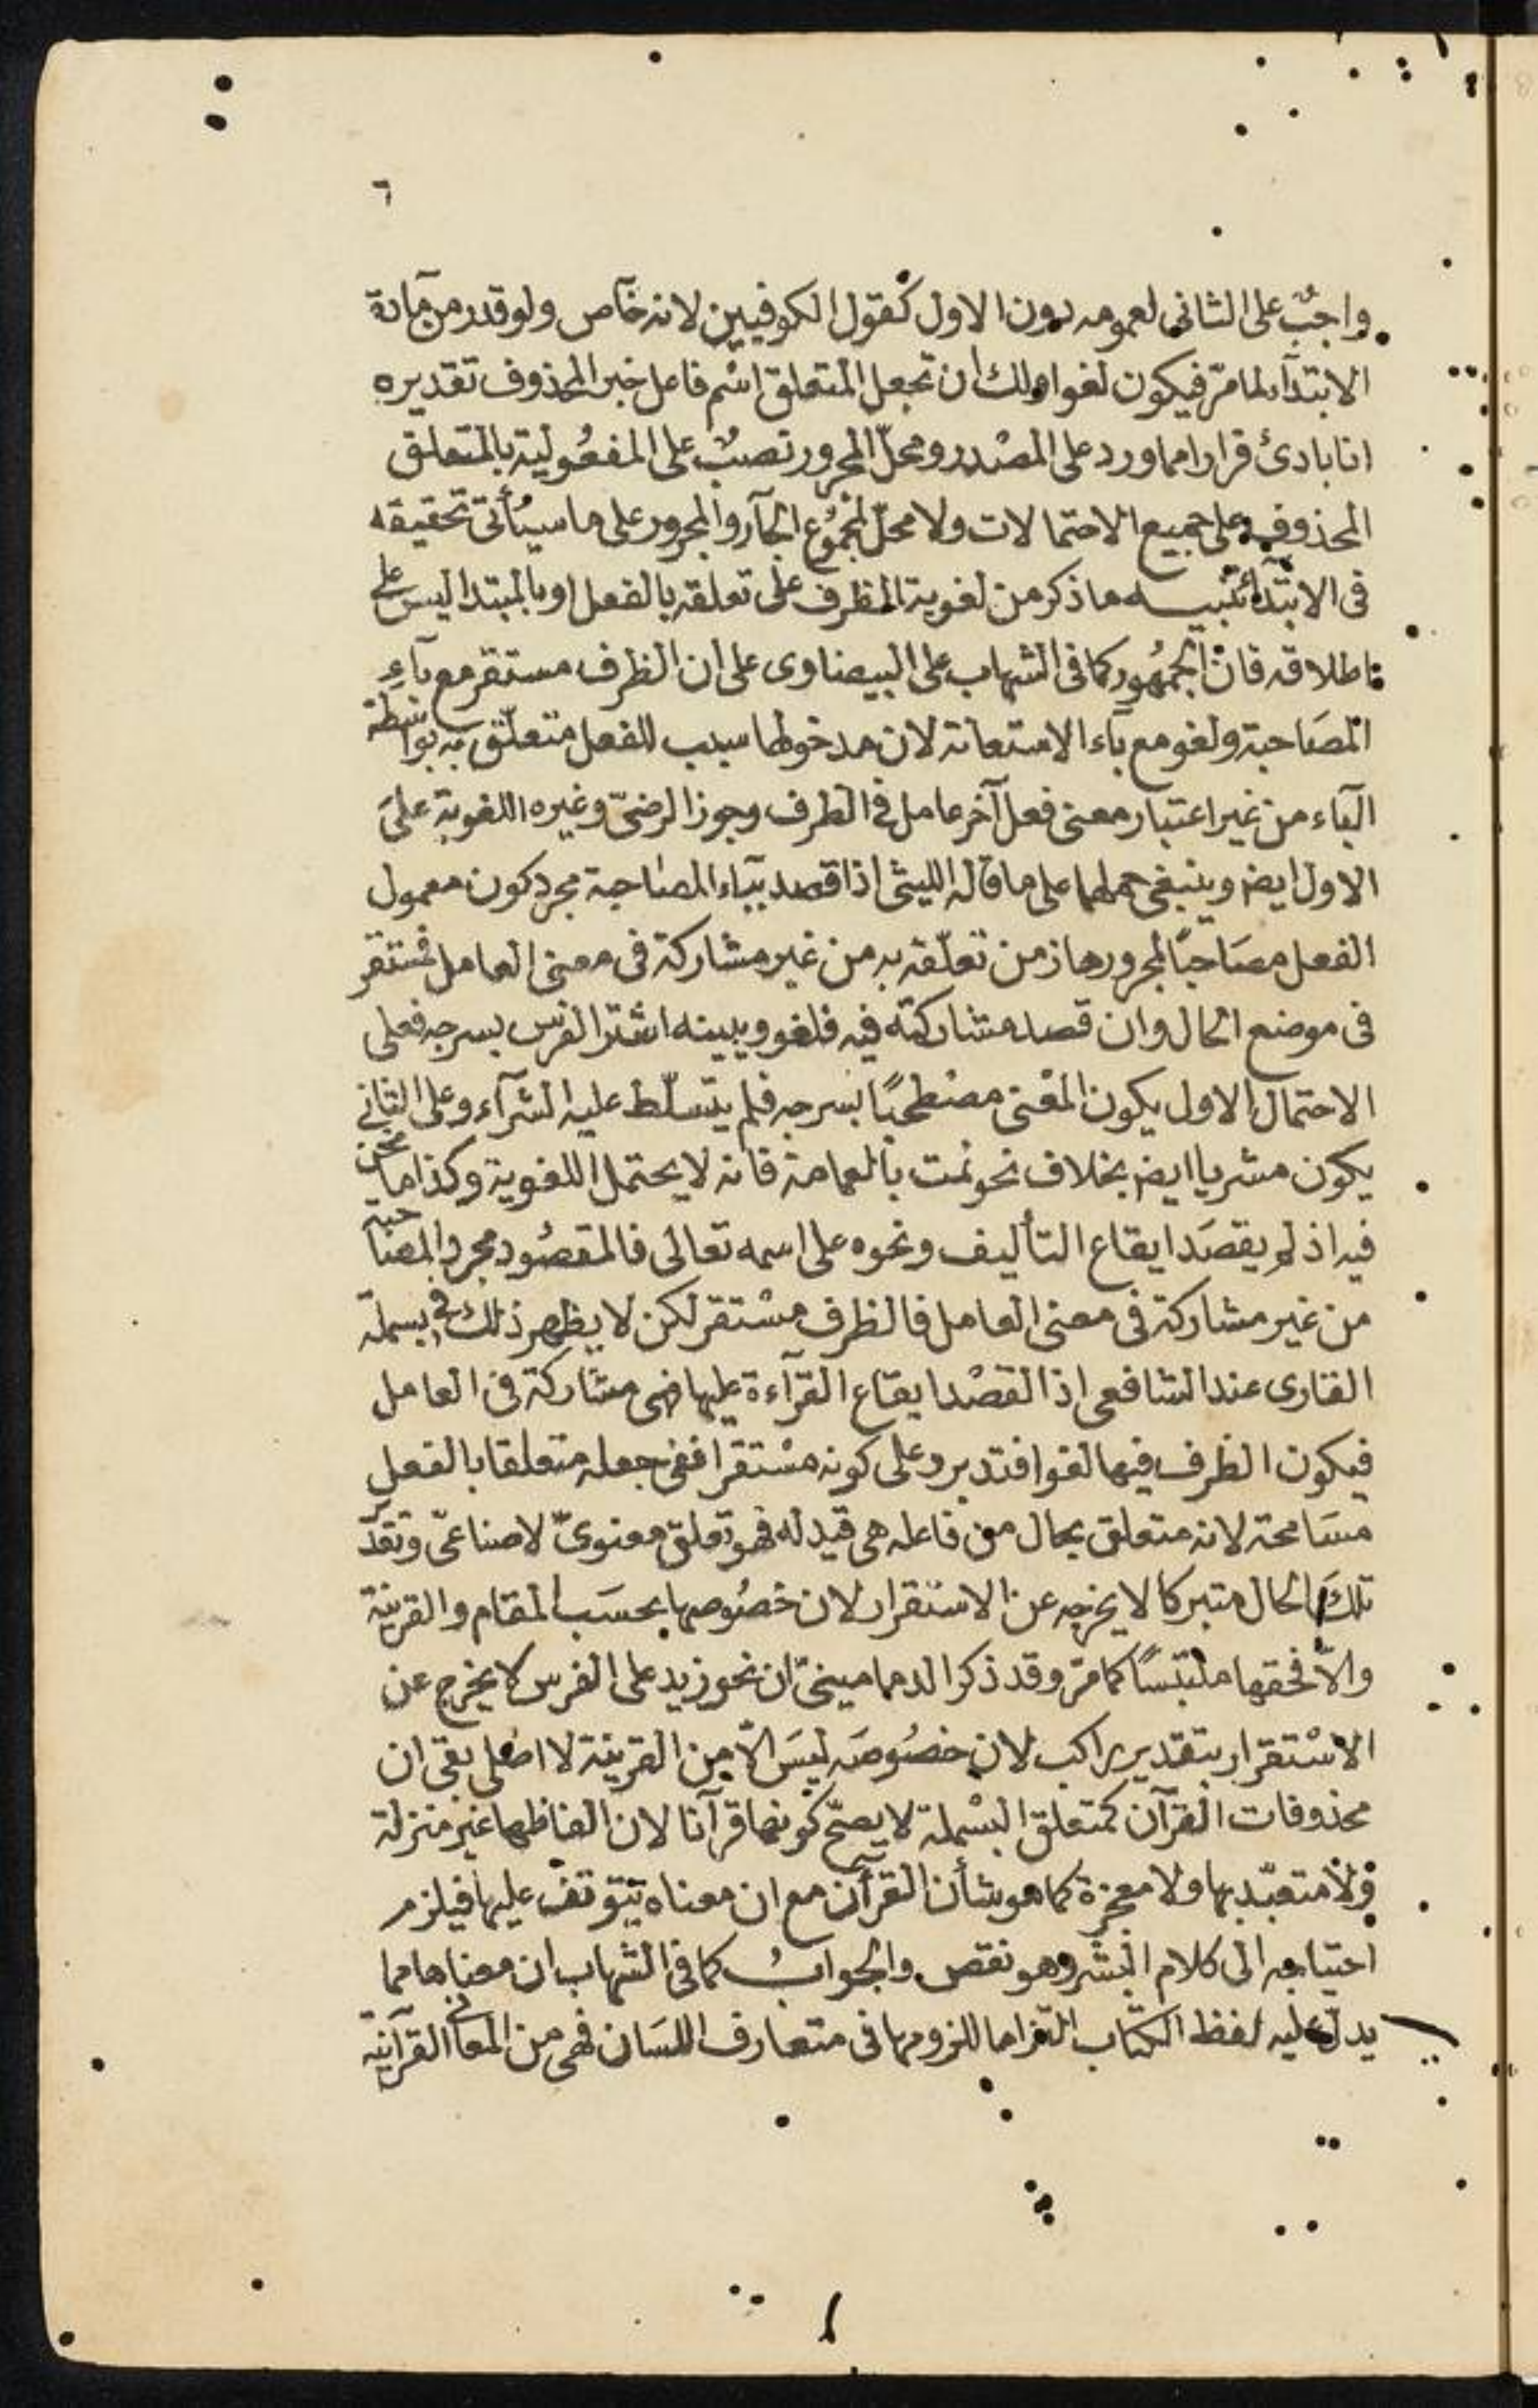 ٦
واجبٌ على الثانى لعمومه دون الاول كقول الكوفيين لانه خآص ولو قدر من مآدة
الابتدآء لما مرّ فيكون لغوا ولك ان تجعل المتعلق اسْم فاعل خبر المحذوف تقديره
انا بادئ فرارا مما ورد على المصْدر ومحلّ المجرور نصبٌ على المفعُولية بالمتعلق
المحذوف وعلى جميع الاحتمالات ولا محلّ لمجمُوع الجآر والمجرور على ما سيُأتى تحقيقه
فى الابتدآء تنبيه ما ذكر من لغوية الظرف على تعلقه بالفعل او بالمبتدا ليس على
اطلاقه فان الجمهُور كما فى الشهاب على البيضاوى على ان الظرف مستقر مع بآءِ
المصَاحبة ولغو مع بآء الاستعانة لان مدخولها سبب للفعل متعلّق به بواسطة
البآء من غير اعتبار معنى فعل آخر عامل فى الظرف وجوز الرضىّ وغيره اللغوية علىَ
الاول ايض وينبغى حملها على ما قاله الليثى اذا قصد ببآء المصاحبة مجرد كون معمول
الفعل مصَاحبًا لمجرورها زمن تعلّقه به من غير مشاركة فى معنى العامل فمستقر
فى موضع الحال وان قصد مشاركته فيه فلغو ويبينه اشتر الفرس بسرجه فعلى
الاحتمال الاول يكون المعْنى مصْطحبًا بسرجه فلم يتسلّط عليه الشرآء وعلى الثانى
يكون مشريا ايض بخلاف نحو نمت بالعمامة فانه لا يحتمل اللغوية وكذا ما نحن
فيه اذ لم يقصَد ايقاع التأليف ونحوه على اسمه تعالى فالمقصُود مجرد المصاحبة
من غير مشاركة فى معنى العامل فالظرف مسْتقر لكن لا يظهر ذلك فى بسملة
القارى عند الشافعى اذ القصْد ايقاع القرآءة عليها فهى مشاركة فى العامل
فيكون الظرف فيها لغوا فتدبر وعلى كونه مسْتقرا ففى جعله متعلقا بالفعل
مسَامحة لانه متعلق بحال من فاعله هى قيد له فهو تعلق معنوىّ لا صناعىّ وتقدير
تلك الحال متبركا لا يخرجه عن الاستقرار لان خصُوصها بحسَب المقام والقرينة
والّا فحقها ملتبسًا كما مرّ وقد ذكر الدمامينىّ ان نحو زيد على الفرس لا يخرج عن
الاسْتقرار بتقدير راكب لان خصُوصَه ليسَ الّا من القرينة لا اصْلى بقى ان
محذوفات القرآن كمتعلق البسْملة لا يصحّ كونها قرآنا لان الفاظها غير منزلة
ولا متعبّد بها ولا معجزة كما هو شأن القرآن مع ان معناه يتوقف عليها فيلزم
احتياجه الى كلام البشر وهو نقص والجوابُ كما فى الشهاب ان معناها مما
يدل عليه لفظ الكتاب التزاما للزومها فى متعارف اللسَان فهى من المعانى القرآنية